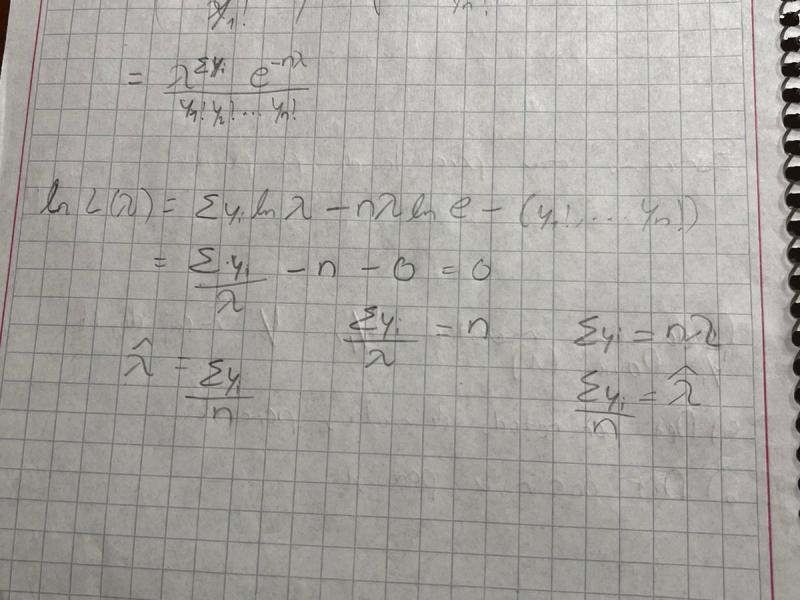 y₁!
= λ^Σyᵢ e^-nλ / y₁! y₂! ... yₙ!
ln L(λ) = Σyᵢ ln λ - nλ ln e - (y₁! ... yₙ!)
= Σyᵢ / λ - n - 0 = 0
Σyᵢ / λ = n
Σyᵢ = nλ
λ̂ = Σyᵢ / n
Σyᵢ / n = λ̂